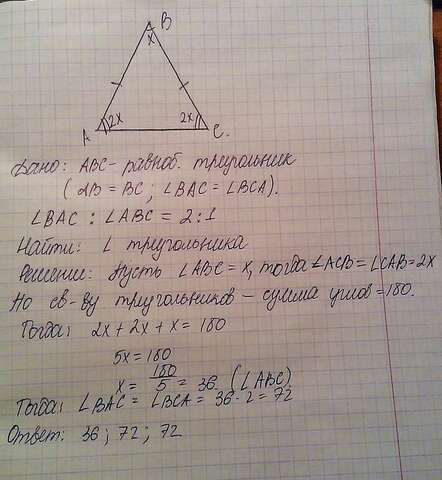 B
x
2x
2x
A
C.
Дано: ABC - равноб. триугольник
( AB = BC ; ∠BAC = ∠BCA).
∠BAC : ∠ABC = 2:1
Найти: ∠ триугольника
Решении: Пусть ∠ABC = x, тогда ∠ACB = ∠CAB = 2x
По св-ву триугольников - сумма углов = 180.
Тогда: 2x + 2x + x = 180
5x = 180
x = 180/5 = 36. (∠ABC)
Тогда: ∠BAC = ∠BCA = 36 · 2 = 72
Ответ: 36 ; 72 ; 72